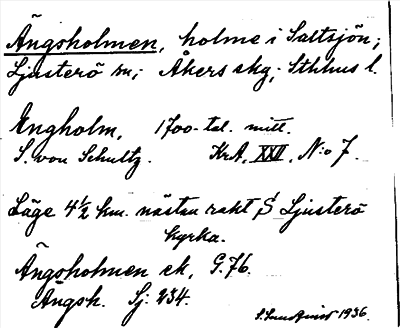 Ängsholmen, holme i Saltsjön;
Ljusterö sn; Åkers skg; Sthlms l.
Engholm, 1700-tal. mitt.
S. von Schultz. KrA, XXII, N:o 7.
Läge 4½ km. nästan rakt S Ljusterö
kyrka.
Ängsholmen ek, G.76.
Ängsh. Sj: 234.
1936.